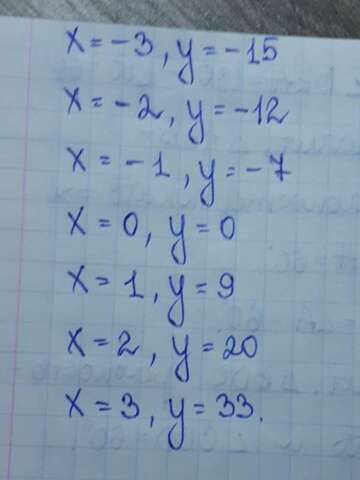 x = -3, y = -15
x = -2, y = -12
x = -1, y = -7
x = 0, y = 0
x = 1, y = 9
x = 2, y = 20
x = 3, y = 33.